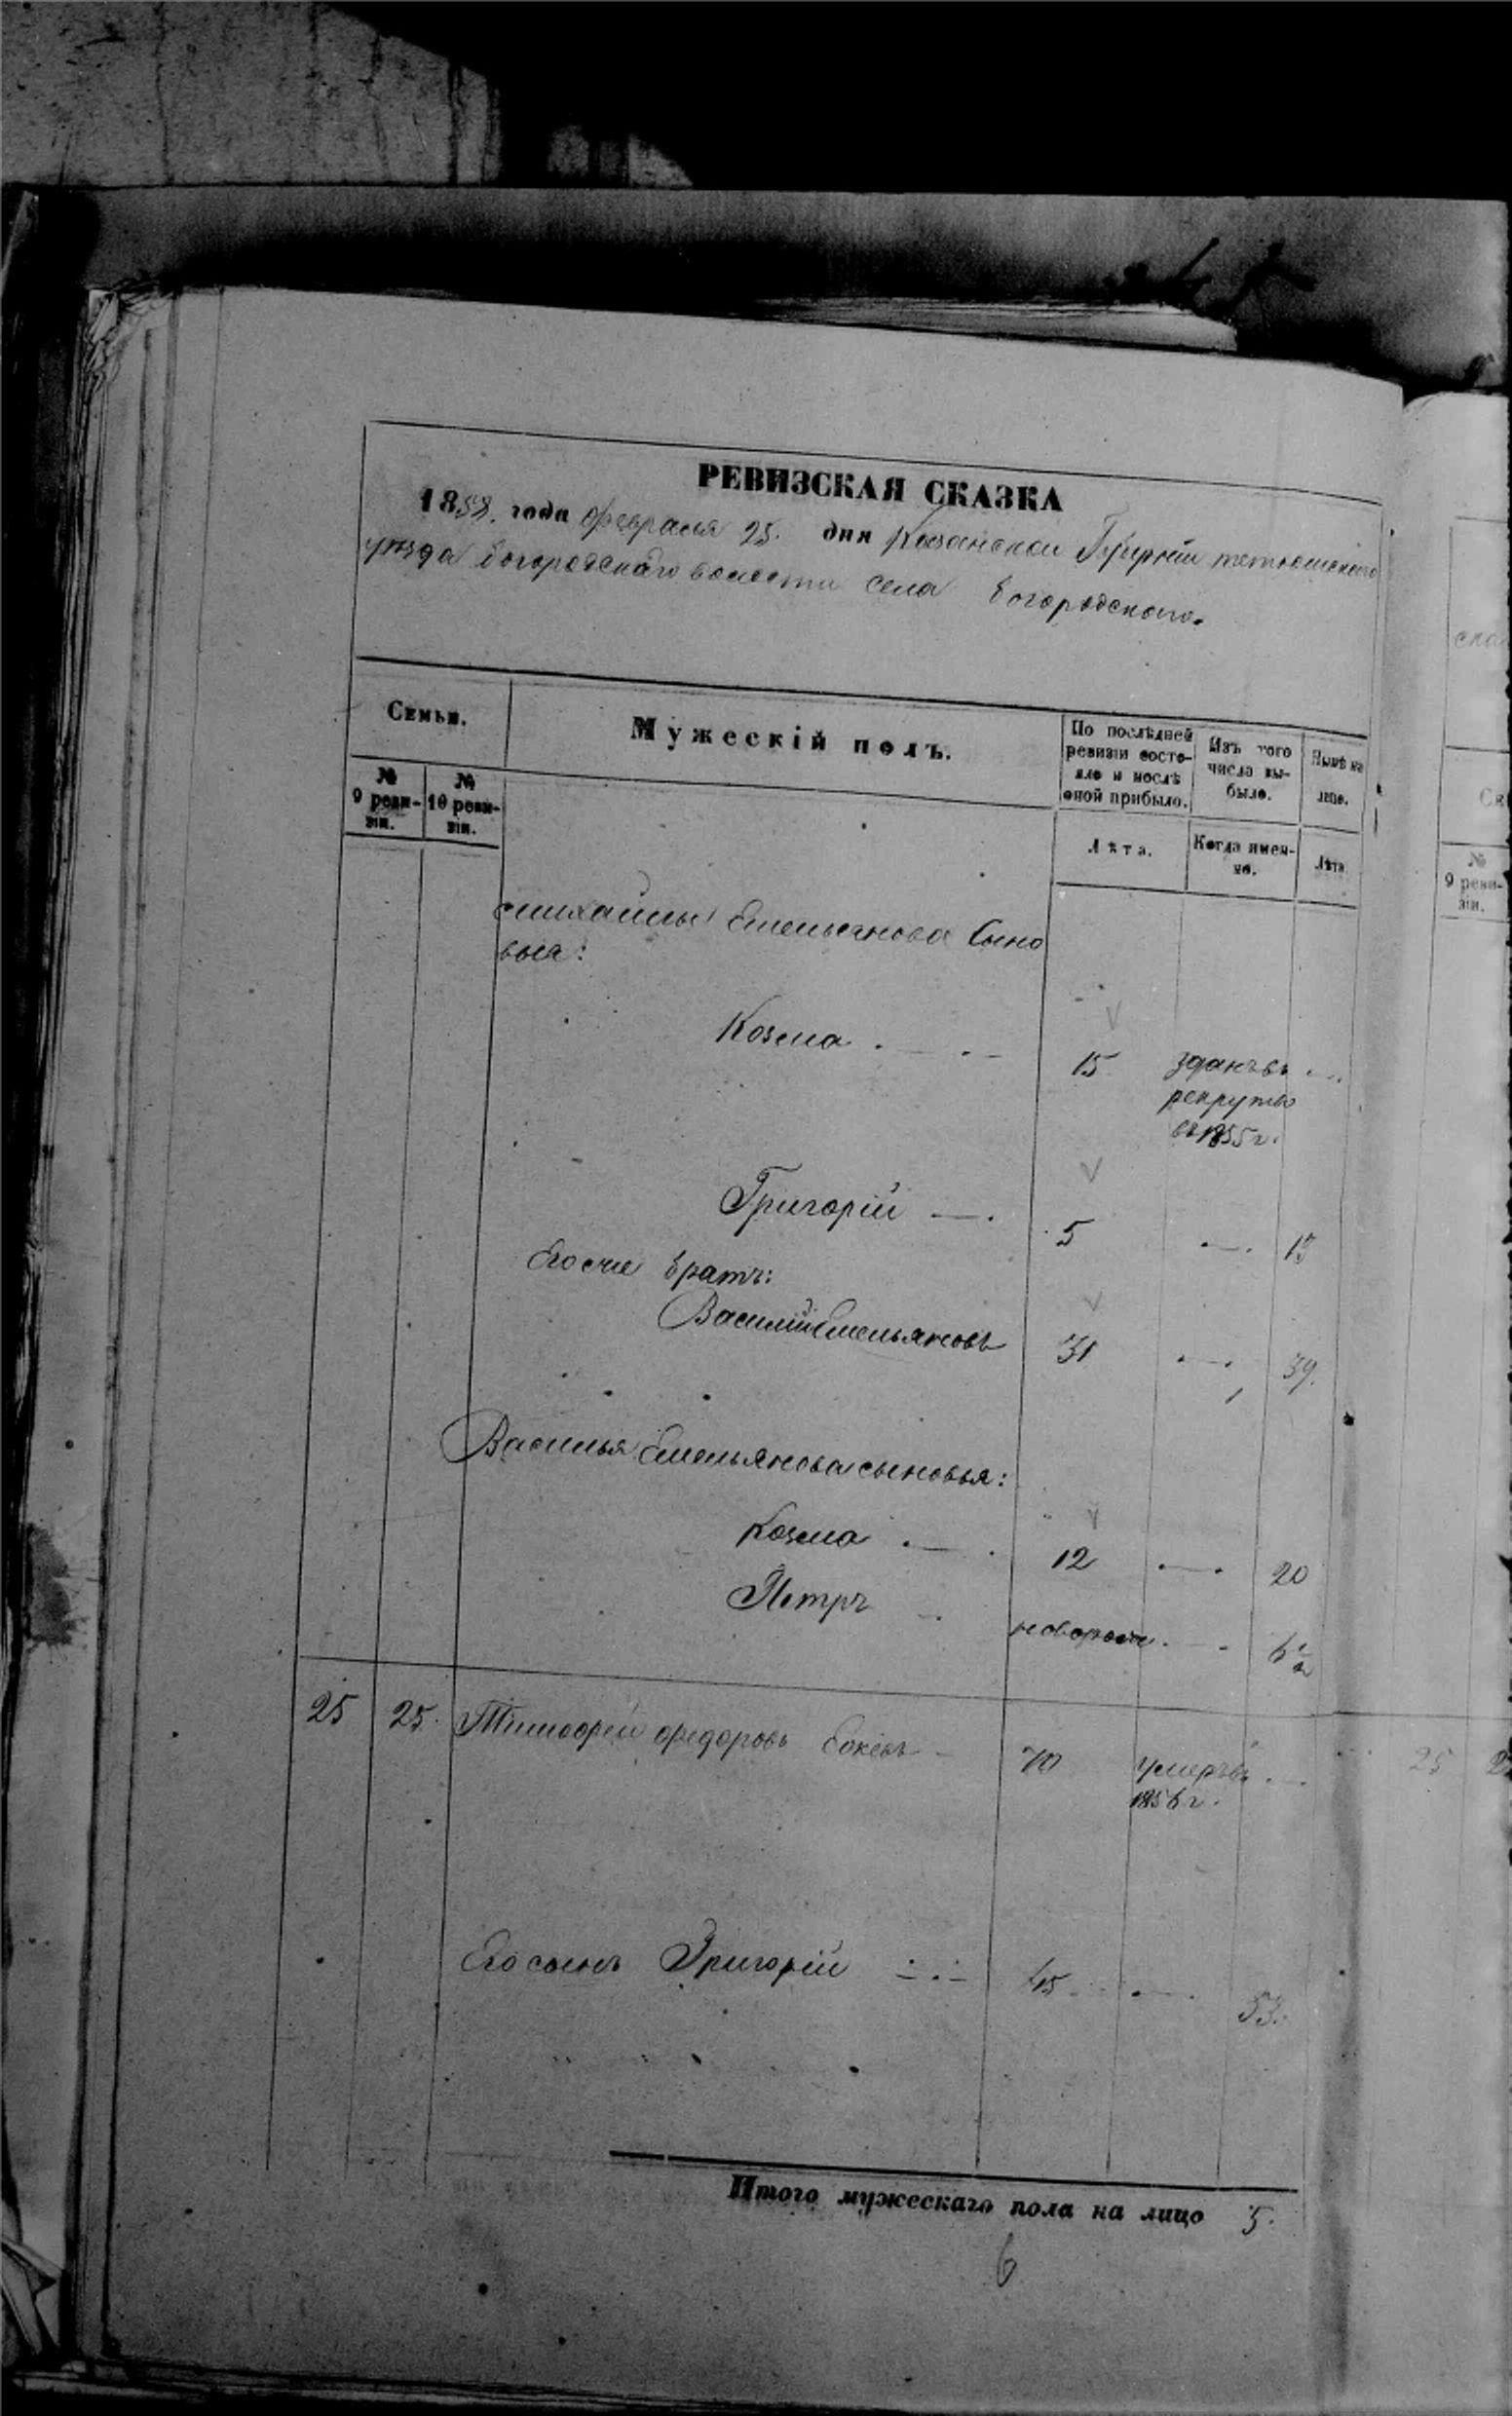 РЕВИЗСКАЯ СКАЗКА
1858. года февраля 25. дня Казанской Губернии тетюшскаго
уезда богородскаго волости села богородскаго.
Семьи.
Мужескій полъ.
По послѣдней ревизіи состояло и послѣ оной прибыло.
Изъ того числа выбыло.
Нынѣ на лицо.
№ 9 ревизіи.
№ 10 ревизіи.
Лѣта.
Когда именно.
Лѣта
михайлы Емельянова Сыно
вья:
Козма 15 зданъ въ
рекруты
въ 1855 г.
Григорій 5 13
Его же братъ:
Василій Емельяновъ 31 39.
Василья Емельянова сыновья:
Козма 12 20
Петръ новорож. 6 ½
25 25. Тимофей федоровъ 70 умеръ въ
1856 г.
Его сынъ Григорій 45 53.
Итого мужескаго пола на лицо 5.
6
№ 9 ревизіи.
25